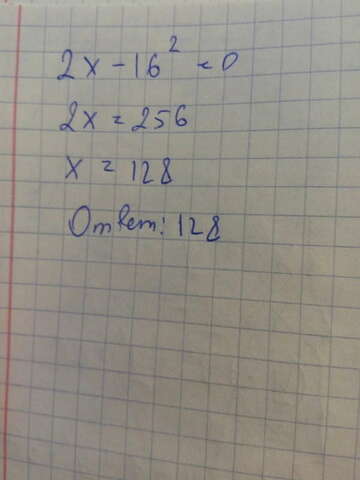 2x - 16² = 0
2x = 256
x = 128
Ответ: 128